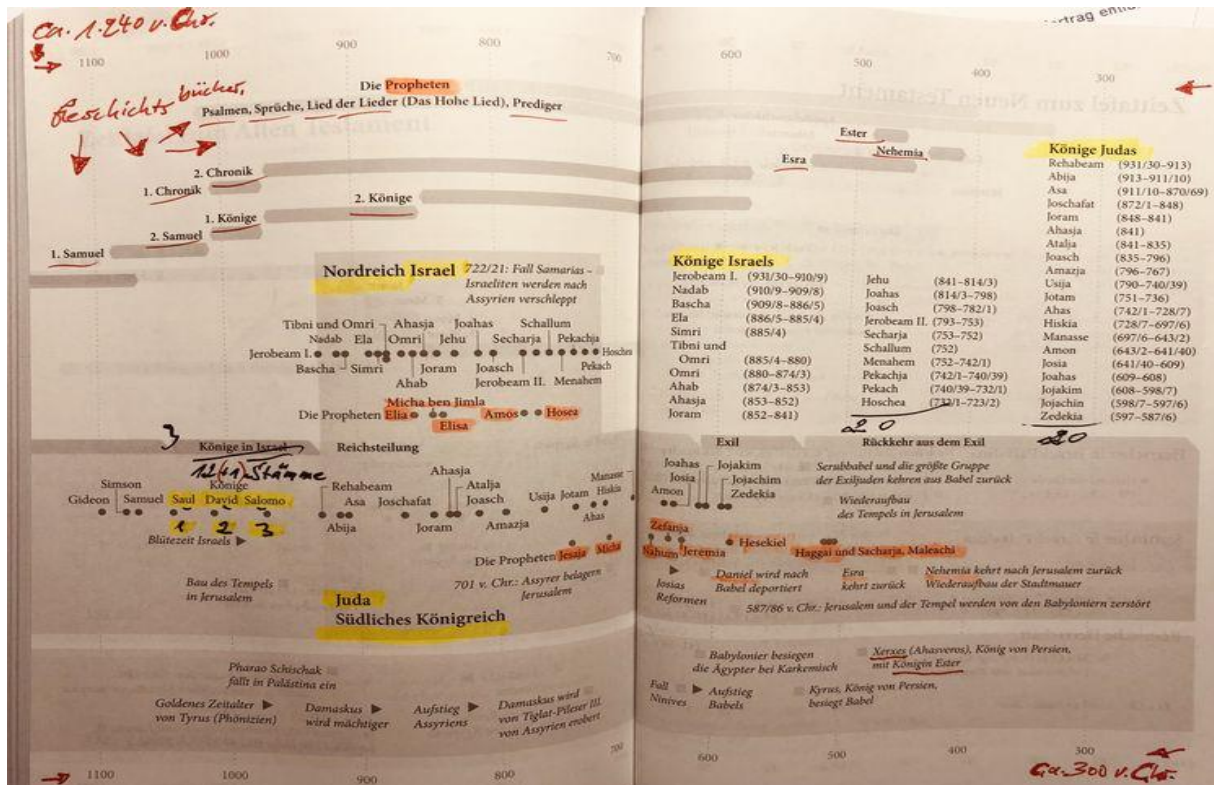 Ca. 1.240 v. Chr.
1100 1000 900 800 700
Geschichtsbücher,
Die Propheten
Psalmen, Sprüche, Lied der Lieder (Das Hohe Lied), Prediger
2. Chronik
1. Chronik
2. Könige
1. Könige
2. Samuel
1. Samuel
Nordreich Israel
722/21: Fall Samarias –
Israeliten werden nach
Assyrien verschleppt
Tibni und Omri Ahasja Joahas Schallum
Nadab Ela Omri Jehu Secharja Pekachja
Jerobeam I. Hoschea
Bascha Simri Joram Joasch Pekach
Ahab Jerobeam II. Menahem
Micha ben Jimla
Die Propheten Elia Amos Hosea
Elisa
3
Könige in Israel Reichsteilung
12(+1) Stämme
Simson Könige
Gideon Samuel Saul David Salomo
1 2 3
Blütezeit Israels
Ahasja
Rehabeam Atalja Manasse
Asa Joschafat Joasch Usija Jotam Hiskia
Abija Joram Amazja Ahas
Die Propheten Jesaja Micha
Bau des Tempels
in Jerusalem
701 v. Chr.: Assyrer belagern
Jerusalem
Juda
Südliches Königreich
Pharao Schischak
fällt in Palästina ein
Goldenes Zeitalter
von Tyrus (Phönizien)
Damaskus
wird mächtiger
Aufstieg
Assyriens
Damaskus wird
von Tiglat-Pileser III.
von Assyrien erobert
1100 1000 900 800 700
ertrag
600 500 400 300
Zeittafel zum Neuen Testament
Ester
Nehemia
Esra
Könige Judas
Rehabeam (931/30–913)
Abija (913–911/10)
Asa (911/10–870/69)
Joschafat (872/1–848)
Joram (848–841)
Ahasja (841)
Atalja (841–835)
Joasch (835–796)
Amazja (796–767)
Usija (790–740/39)
Jotam (751–736)
Ahas (742/1–728/7)
Hiskia (728/7–697/6)
Manasse (697/6–643/2)
Amon (643/2–641/40)
Josia (641/40–609)
Joahas (609–608)
Jojakim (608–598/7)
Jojachin (598/7–597/6)
Zedekia (597–587/6)
20
Könige Israels
Jerobeam I. (931/30–910/9)
Nadab (910/9–909/8)
Bascha (909/8–886/5)
Ela (886/5–885/4)
Simri (885/4)
Tibni und
Omri (885/4–880)
Omri (880–874/3)
Ahab (874/3–853)
Ahasja (853–852)
Joram (852–841)
Jehu (841–814/3)
Joahas (814/3–798)
Joasch (798–782/1)
Jerobeam II. (793–753)
Secharja (753–752)
Schallum (752)
Menahem (752–742/1)
Pekachja (742/1–740/39)
Pekach (740/39–732/1)
Hoschea (732/1–723/2)
20
Exil Rückkehr aus dem Exil
Joahas Jojakim
Josia Jojachim
Amon Zedekia
Serubbabel und die größte Gruppe
der Exiljuden kehren aus Babel zurück
Wiederaufbau
des Tempels in Jerusalem
Zefanja
Hesekiel
Nahum Jeremia Haggai und Sacharja, Maleachi
Josias
Reformen
Daniel wird nach
Babel deportiert
Esra
kehrt zurück
Nehemia kehrt nach Jerusalem zurück
Wiederaufbau der Stadtmauer
587/86 v. Chr.: Jerusalem und der Tempel werden von den Babyloniern zerstört
Babylonier besiegen
die Ägypter bei Karkemisch
Xerxes (Ahasveros), König von Persien,
mit Königin Ester
Fall
Ninives
Aufstieg
Babels
Kyrus, König von Persien,
besiegt Babel
600 500 400 300
Ca. 300 v. Chr.